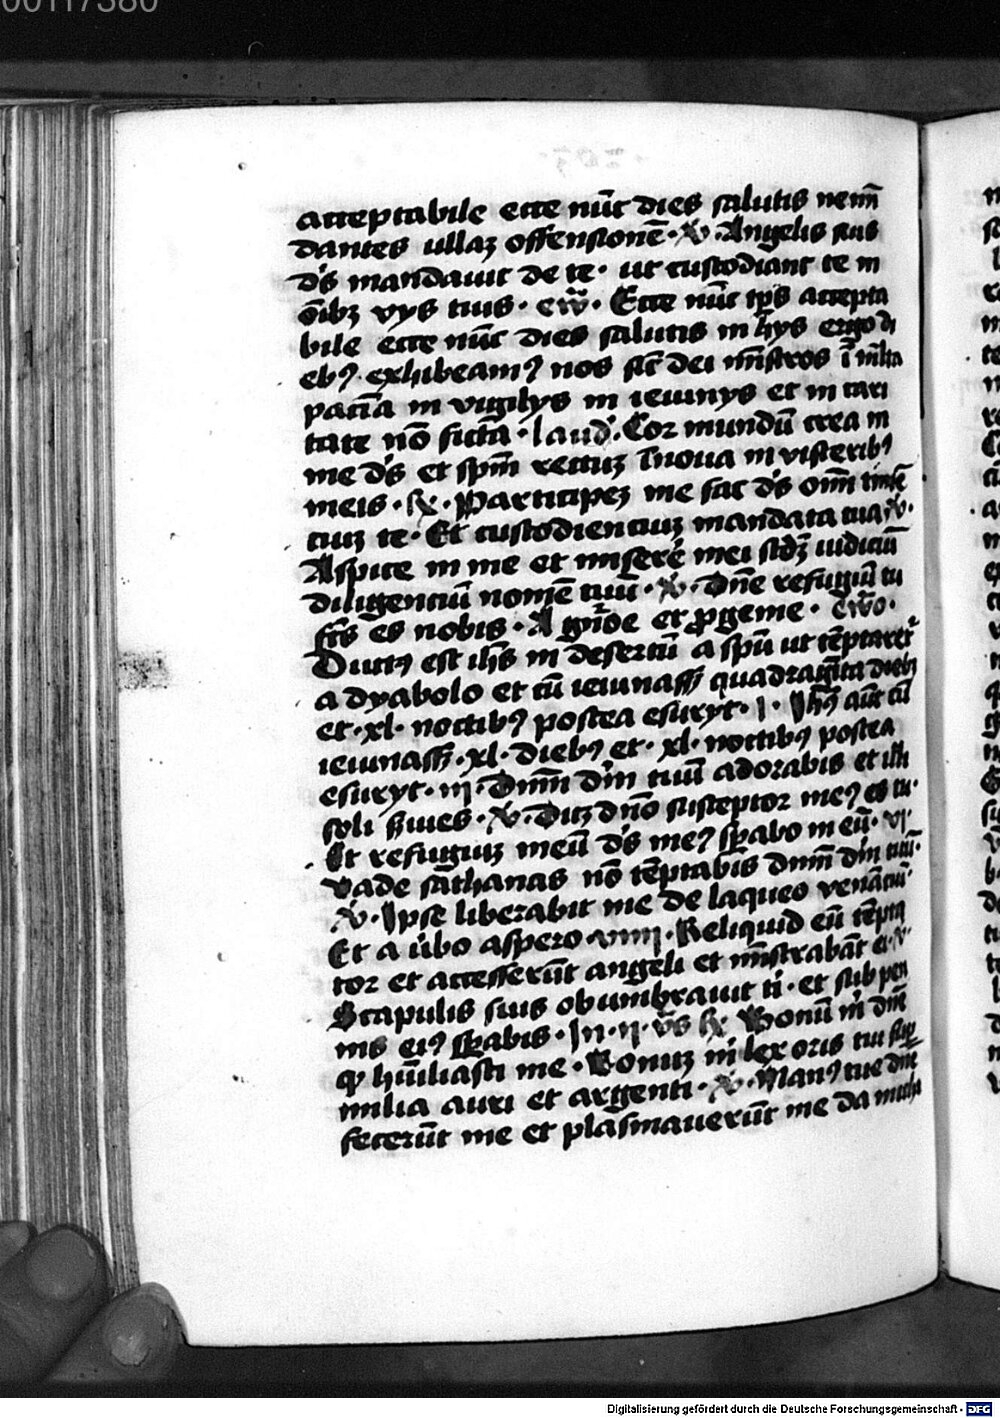 00117380
acceptabile ecce nūc dies salutis nemī
dantes ullaꝫ offensionē · ꝟ · Angelis suis
dn̄s mandavit de te · ut custodiant te in
oībꝫ vijs tuis · ew̄ · Ecce nūc tp̄s accepta
bile ecce nūc dies salutis in hijs ergo di
ebꝰ exhibeamꝰ nos sic̄ dei mīstros ī ml̄ta
paciā in vigilijs in ieiunijs et in cari
tate nō ficta · laud̄ · Cor mundū crea in
me ds̄ et spm̄ rectuꝫ īnova in visceribꝰ
meis · ℟ · Participeꝫ me fac ds̄ oīm timēc
ciuꝫ te · Et custodienciuꝫ mandata tua ꝟ ·
Aspice in me et miserē mei scd̄ꝫ iudiciū
diligenciū nomē tuū · ꝟ · Dn̄e refugiū tu
fcs̄ es nobis · A gn̄de et ꝓgeme · ew̄o ·
Ductꝰ est ih̄s in desertū a spū ut tēptaret̄
a dyabolo et cū ieiunass̄ quadragīta diebꝫ
et · xl · noctibꝰ postea esuryt · I · Ihꝰ aūt cū
ieiunass̄ · xl · diebꝰ et · xl · noctibꝰ postea
esuryt · iij · Dnm̄ dm̄ tuū adorabis et illi
soli s̄vies · ꝟ · Dicꝫ dn̄o susceptor meꝰ es tu ·
Et refugiuꝫ meū ds̄ meꝰ sꝑabo in eū · vi ·
Vade sathanas nō tēptabis dnm̄ dm̄ tuū ·
ꝟ · Ipse liberabit me de laqueo venāciū ·
Et a v̄bo aspero · viiij · Reliquid eū tēpta
tor et accesserūt angeli et mīstrabāt ei · ꝟ ·
Scapulis suis obumbravit ti · et sub pen
nis eiꝰ sꝑabis · In · ij · v̄s ℟ Bonū m̄ dn̄e
ꝙ hūiliasti me · Bonuꝫ m̄ lex oris tui suꝑ
milia auri et argenti · ꝟ · Manꝰ tue dn̄e
fecerūt me et plasmaverūt me da michi
Digitalisierung gefördert durch die Deutsche Forschungsgemeinschaft - DFG